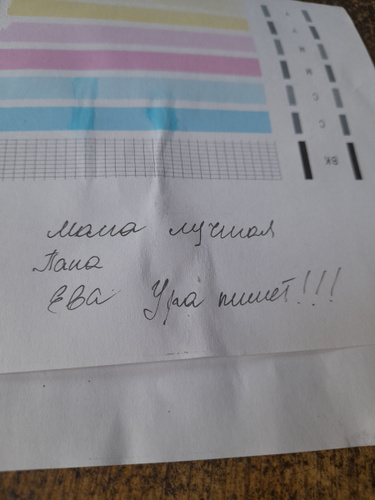 Y
Y
M
M
C
C
BK
мама лучшая
Папа
ЕВА Ура пишет!!!